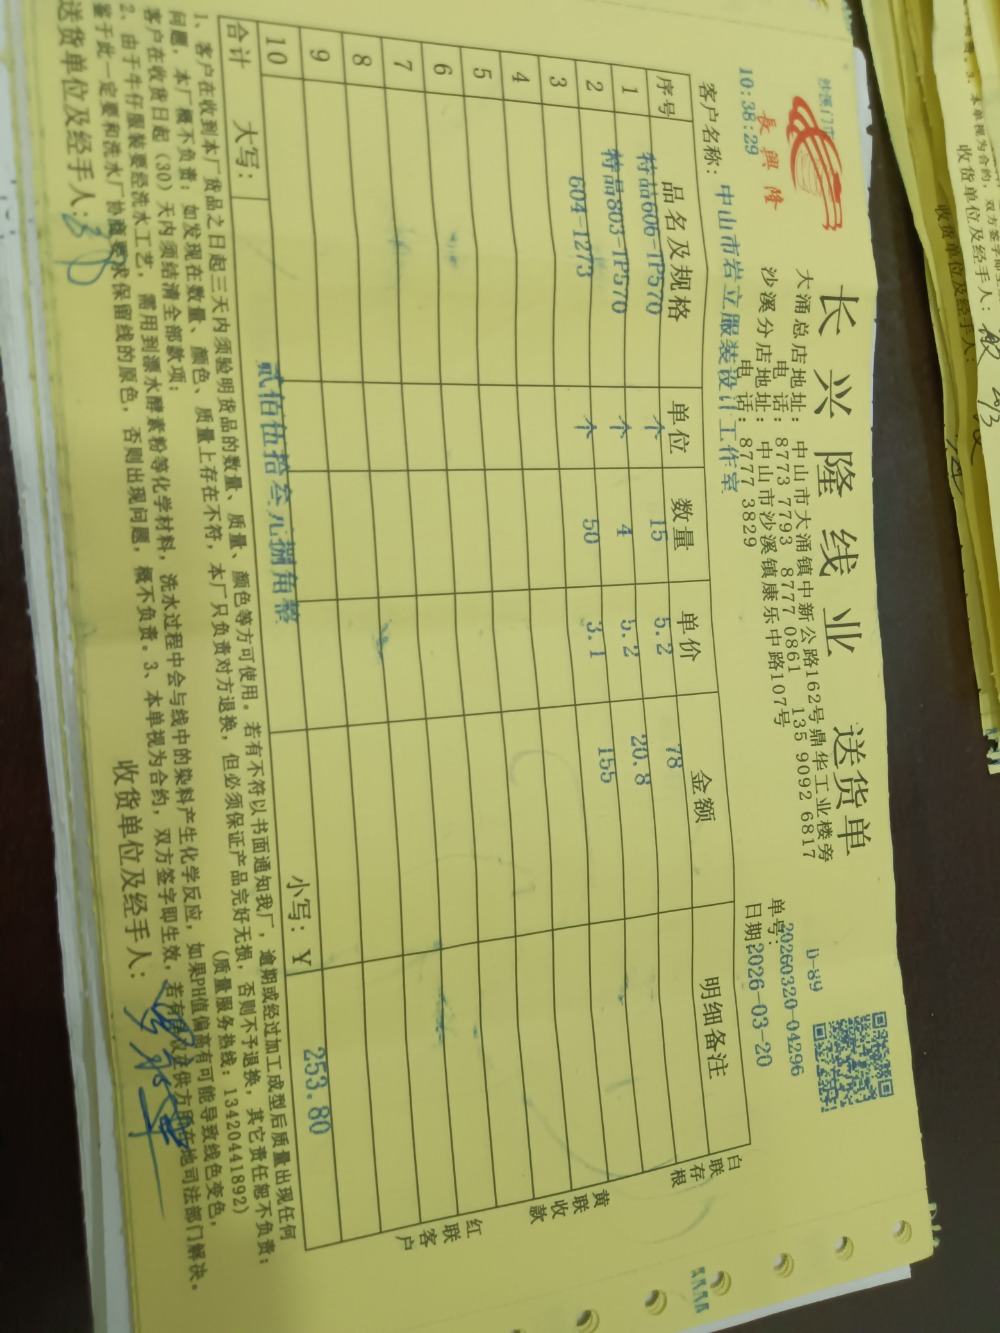 沙溪门市
長興隆
10:38:29
长兴隆线业 送货单
大涌总店地址：中山市大涌镇中新公路162号鼎华工业楼旁
电 话：8773 7793 8777 0861 135 9092 6817
沙溪分店地址：中山市沙溪镇康乐中路107号
电 话：8777 3829
D-89
单号：20260320-04296
日期：2026-03-20
客户名称：中山市岩立服装设计工作室
序号 品名及规格 单位 数量 单价 金额 明细备注
1 特品606-TP570 个 15 5.2 78
2 特品803-TP570 个 4 5.2 20.8
3 604-1273 个 50 3.1 155
4
5
6
7
8
9
10
合计 大写： 贰佰伍拾叁元捌角整 小写：￥ 253.80
白联存根
黄联收款
红联客户
1、客户在收到本厂货品之日起三天内须验明货品的数量、质量、颜色等方可使用。若有不符以书面通知我厂，逾期或经过加工成型后质量出现任何
问题，本厂概不负责；如发现在数量、颜色、质量上存在不符，本厂只负责对方退换，但必须保证产品完好无损，否则不予退换，其它责任恕不负责；
客户在收货日起（30）天内须结清全部款项； （质量服务热线：13420441892）
2、由于牛仔服装要经洗水工艺，需用到漂水酵素粉等化学材料，洗水过程中会与线中的染料产生化学反应，如果PH值偏高有可能导致线色变色，
鉴于此一定要和洗水厂协商要求保留线的原色，否则出现问题，概不负责。3、本单视为合约，双方签字即生效，若有争议在供方所在地司法部门解决。
送货单位及经手人： 收货单位及经手人：
本单视为合约，双方签字即
收货单位及经手人：
收货单位及经手人：